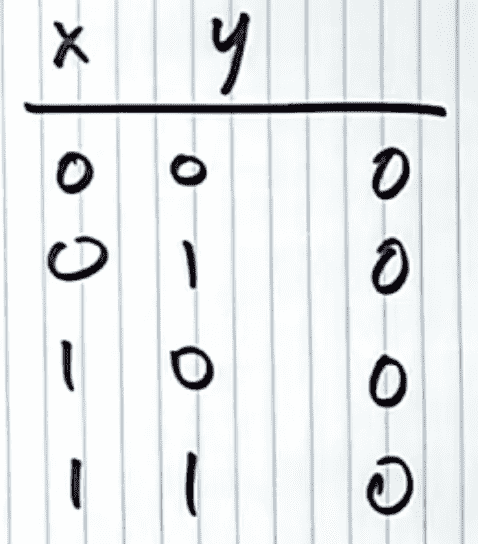 x y
0 0 0
0 1 0
1 0 0
1 1 0